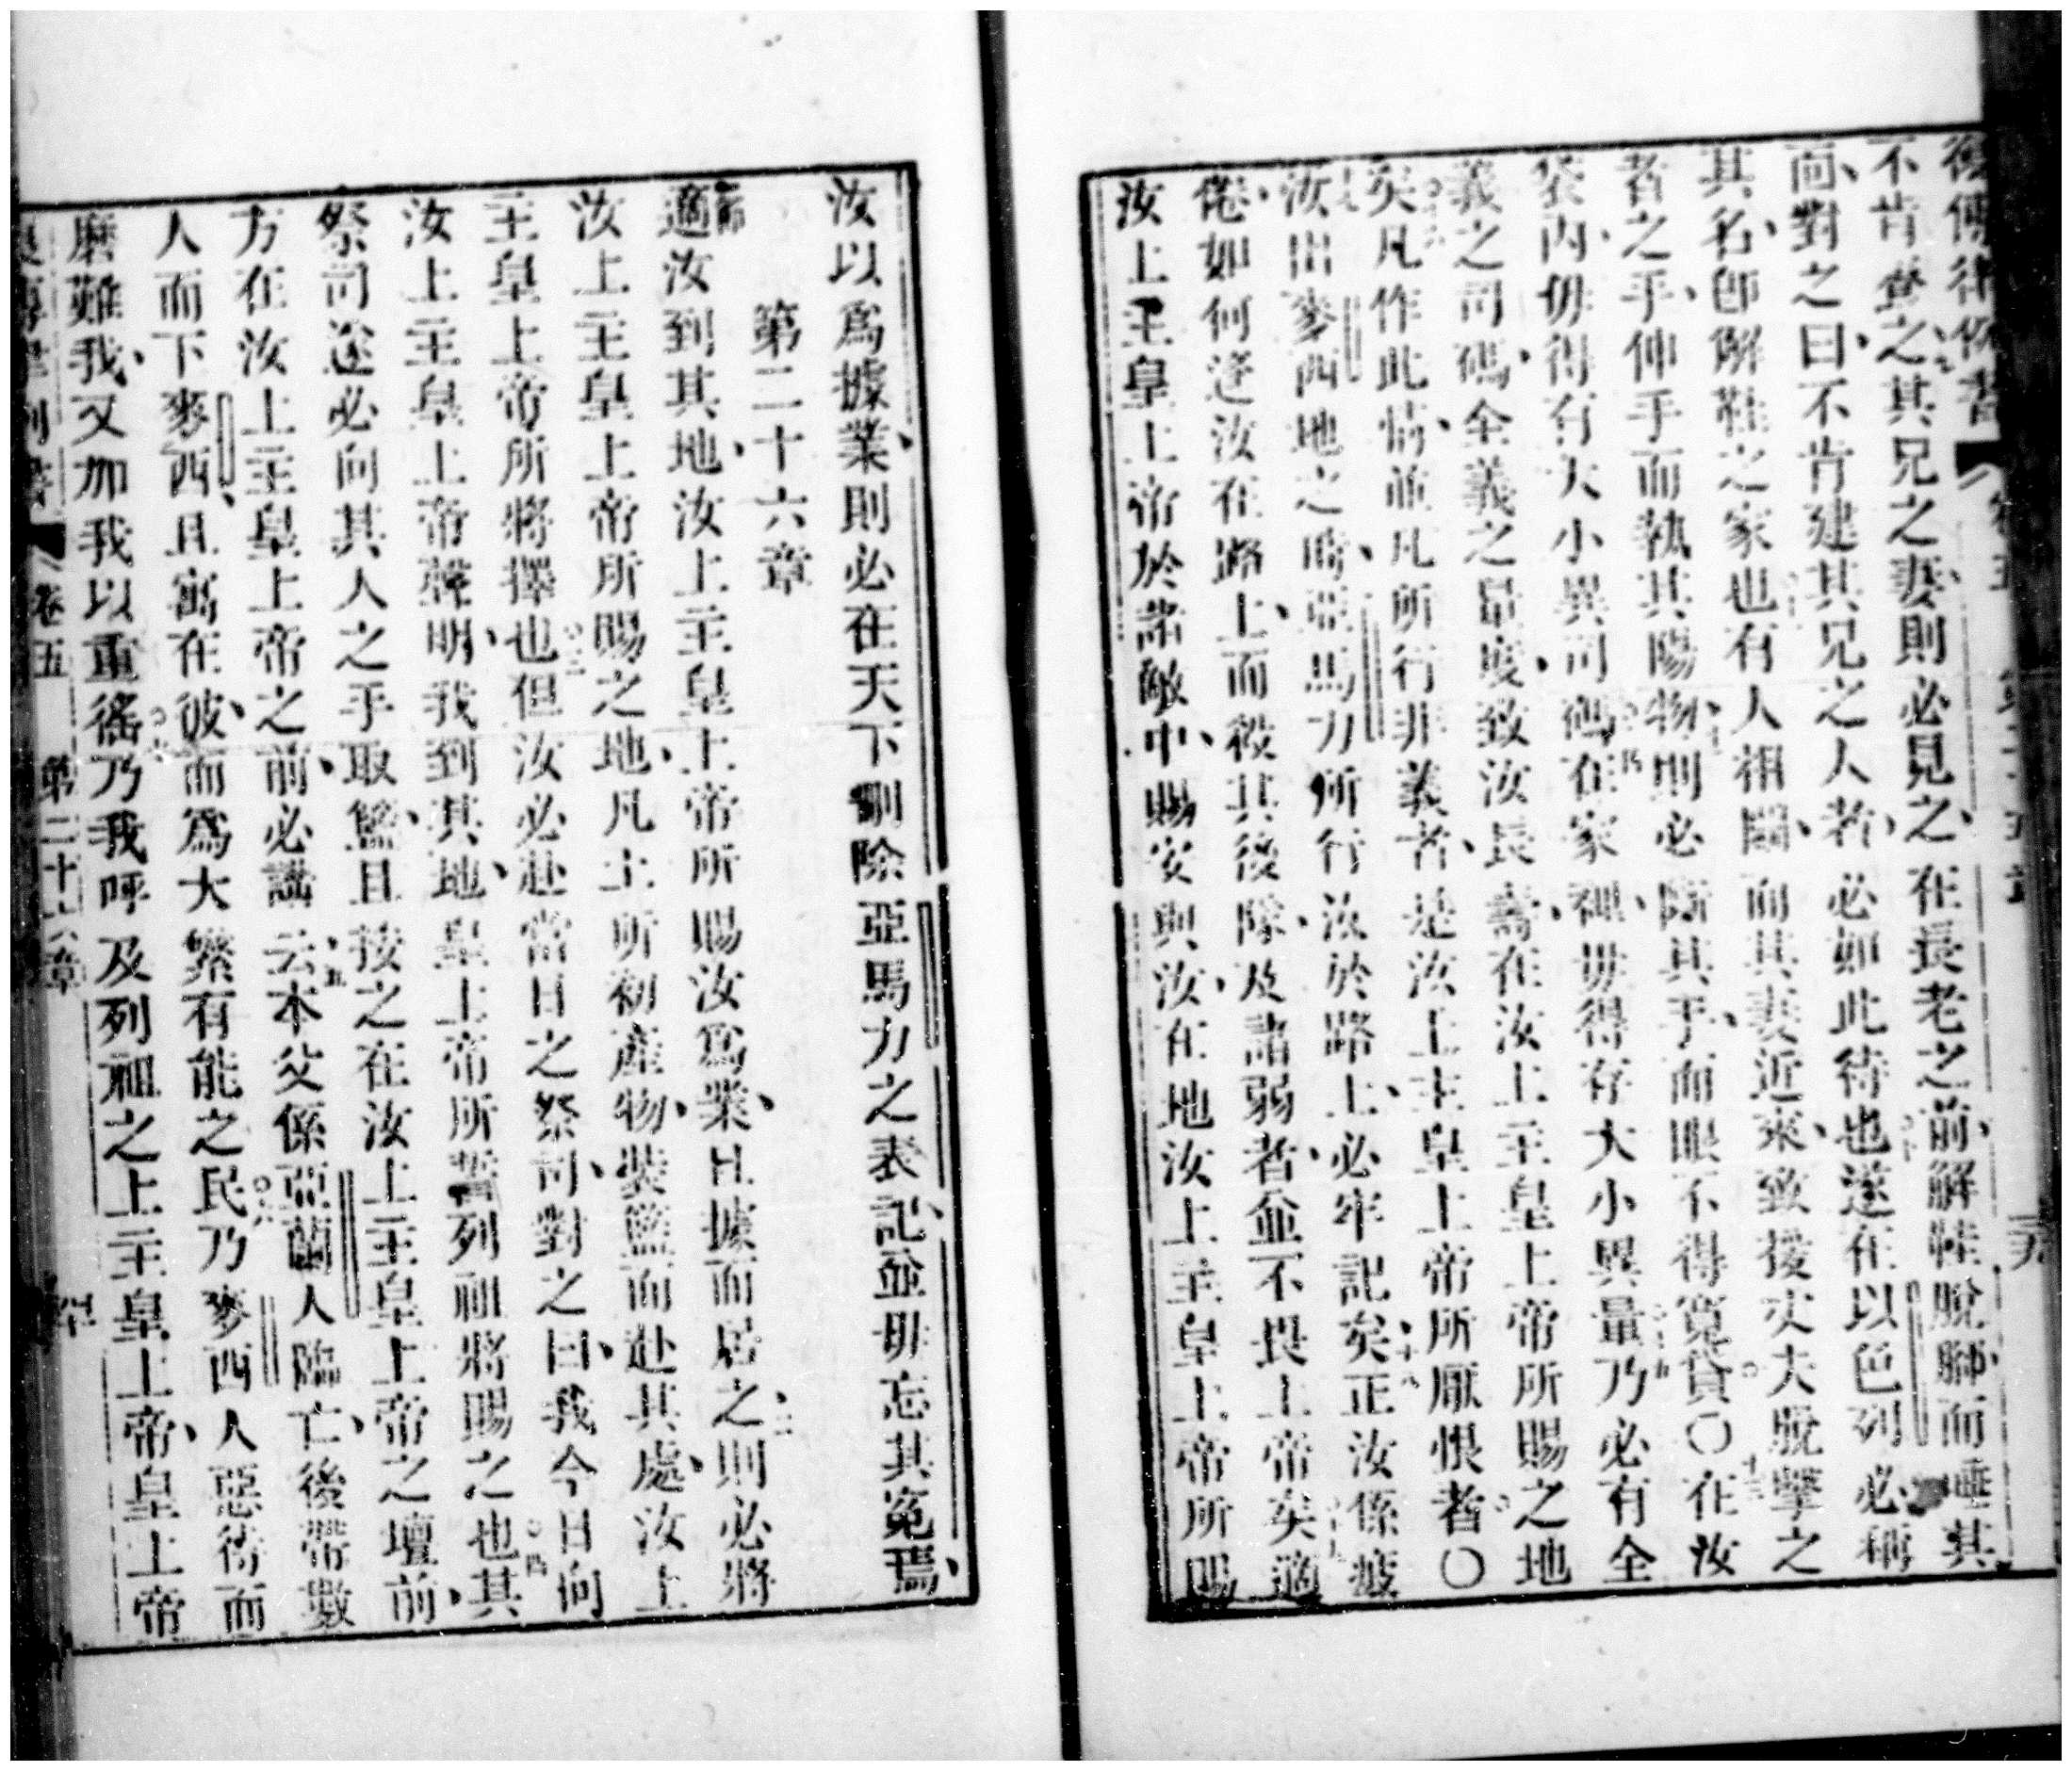 復傳律例書
不肯登之其兄之妻則必見之在長老之前解鞋脫腳而唾其
面對之曰不肯建其兄之人者必如此待也遂在以色列必稱
其名卽解鞋之家也有人相鬭而其妻近來致援丈夫脫擊之
者之手伸手而執其陽物則必斷其手而眼不得寬貸〇在汝
袋內毋得有大小異司碼在家裡毋得存大小異量乃必有全
義之司碼全義之量度致汝長壽在汝上主皇上帝所賜之地
矣凡作此情並凡所行非義者是汝上主皇上帝所厭恨者〇
汝出麥西地之時亞馬力所行汝於路上必牢記矣正汝係疲
倦如何逢汝在路上而殺其後隊及諸弱者並不畏上帝矣適
汝上主皇上帝於諸敵中賜安與汝在地汝上主皇上帝所賜
汝以爲據業則必在天下刪除亞馬力之表記並毋忘其冤焉
第二十六章
適汝到其地汝上主皇上帝所賜汝爲業且據而居之則必將
汝上主皇上帝所賜之地凡土所初產物裝籃而赴其處汝上
主皇上帝所將擇也但汝必赴當日之祭司對之曰我今日向
汝上主皇上帝聲明我到其地皇上帝所誓列祖將賜之也其
祭司遂必向其人之手取籃且按之在汝上主皇上帝之壇前
方在汝上主皇上帝之前必講云本父係亞蘭人臨亡後帶數
人而下麥西且寓在彼而爲大繁有能之民乃麥西人惡待而
磨難我又加我以重徭乃我呼及列祖之上主皇上帝皇上帝
卷五 第二十六章